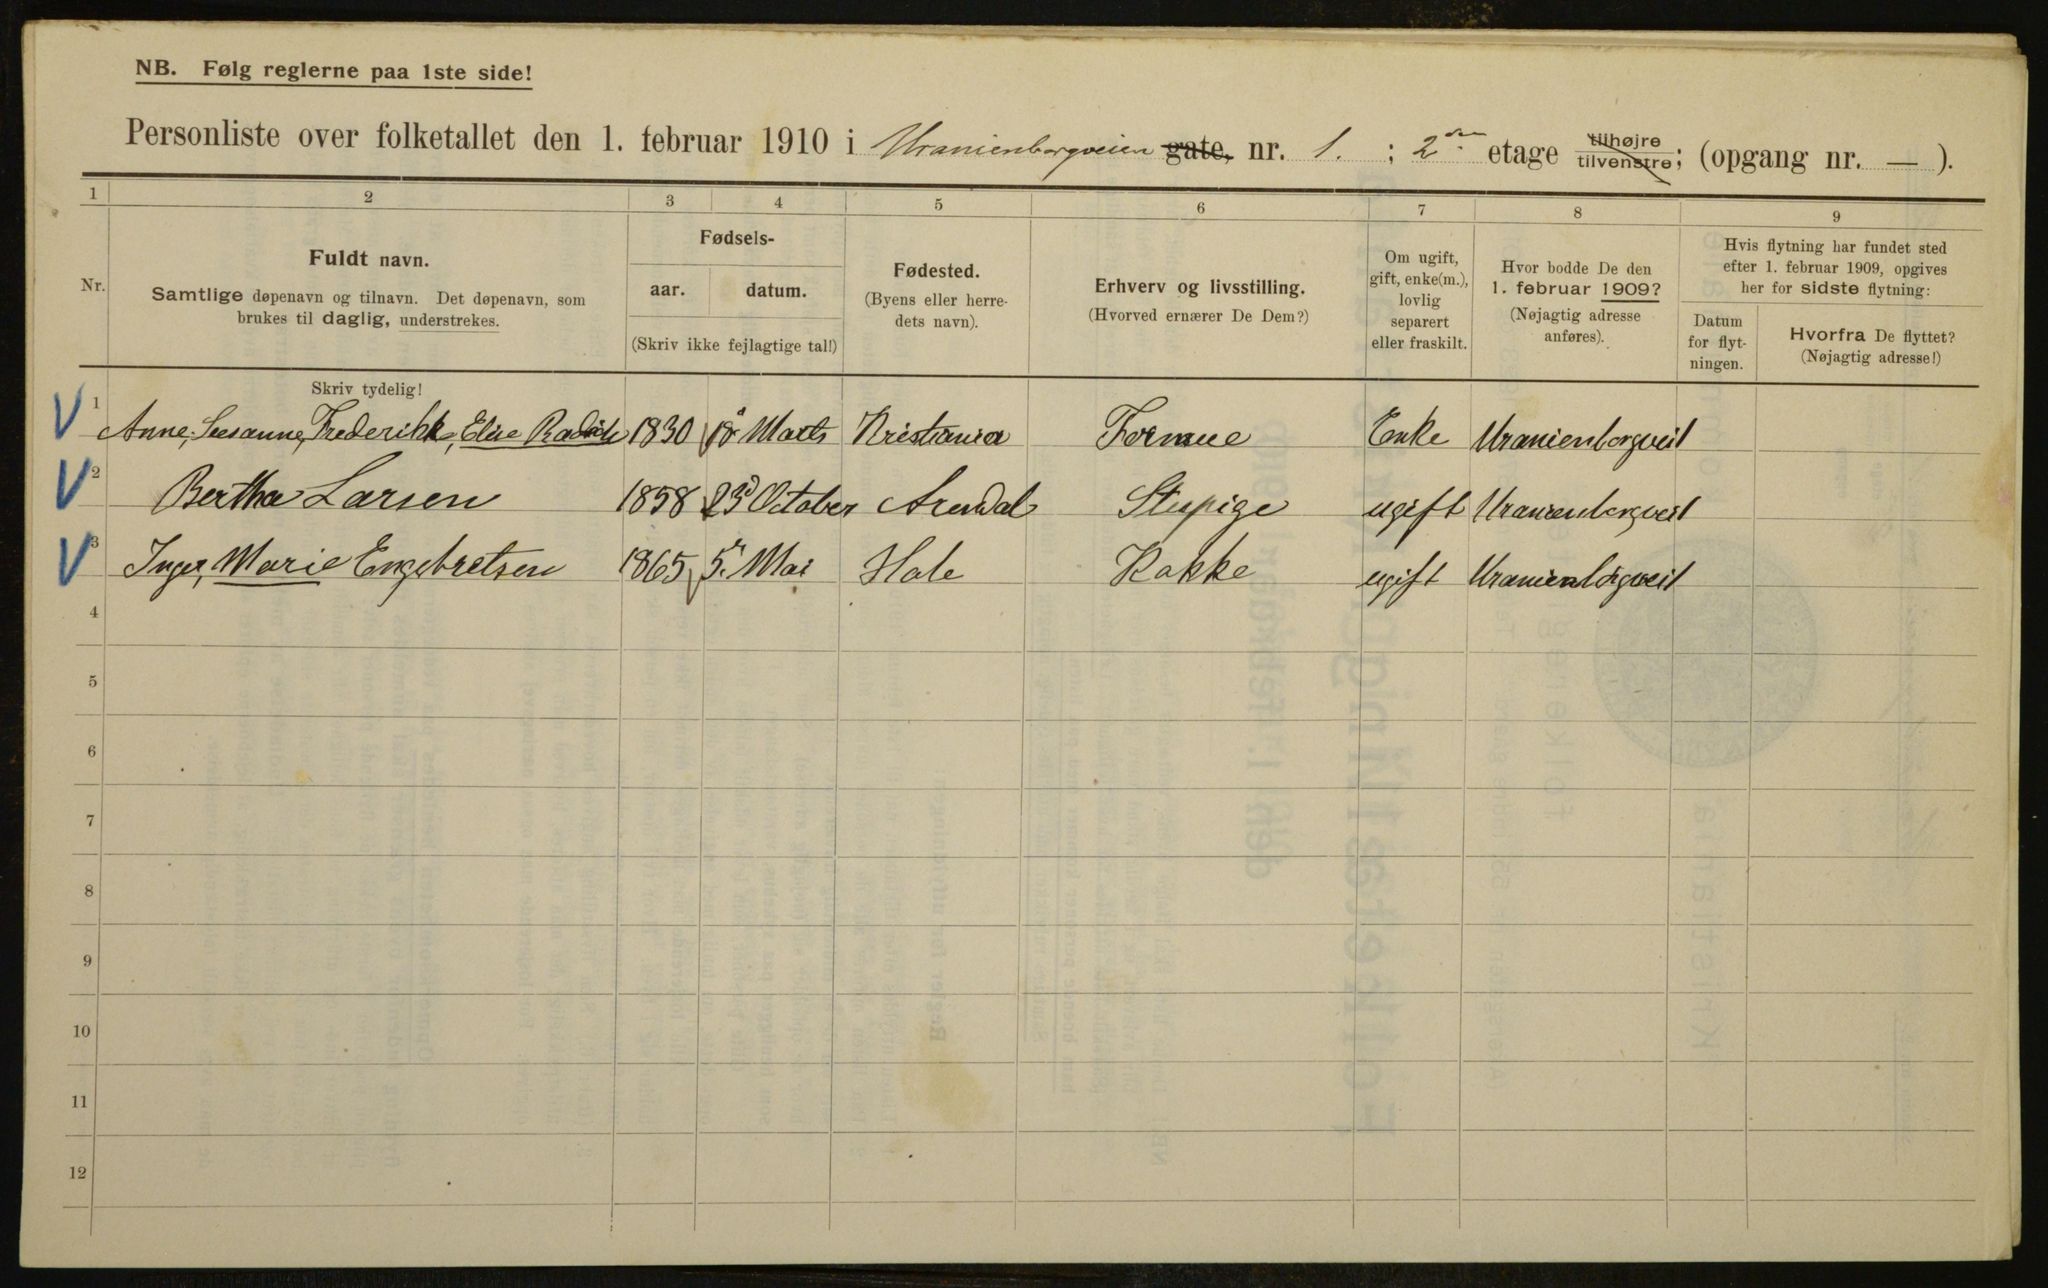 NB. Følg reglerne paa 1ste side!
Personliste over folketallet den 1. februar 1910 i Uranienborgveien gate, nr. 1. ; 2den etage tilhøjre tilvenstre; (opgang nr. — ).
1 2 3 4 5 6 7 8 9
Nr.
Fuldt navn.
Samtlige døpenavn og tilnavn. Det døpenavn, som
brukes til daglig, understrekes.
Skriv tydelig!
Fødsels-
aar. datum.
(Skriv ikke fejlagtige tal!)
Fødested.
(Byens eller herre-
dets navn).
Erhverv og livsstilling.
(Hvorved ernærer De Dem?)
Om ugift,
gift, enke(m.),
lovlig
separert
eller fraskilt.
Hvor bodde De den
1. februar 1909?
(Nøjagtig adresse
anføres).
Hvis flytning har fundet sted
efter 1. februar 1909, opgives
her for sidste flytning:
Datum
for flyt-
ningen.
Hvorfra De flyttet?
(Nøjagtig adresse!)
1 Anne, Susanne, Frederikke, Elise 1830 Marts Kristiania Formue Enke Uranienborgvei 1
2 Bertha Larsen 1858 23d October Arendal Stupige ugift Uranienborgvei 1
3 Inger, Marie Engebretsen 1865 5. Mai Hole Kokke ugift Uranienborgvei 1
4
5
6
7
8
9
10
11
12